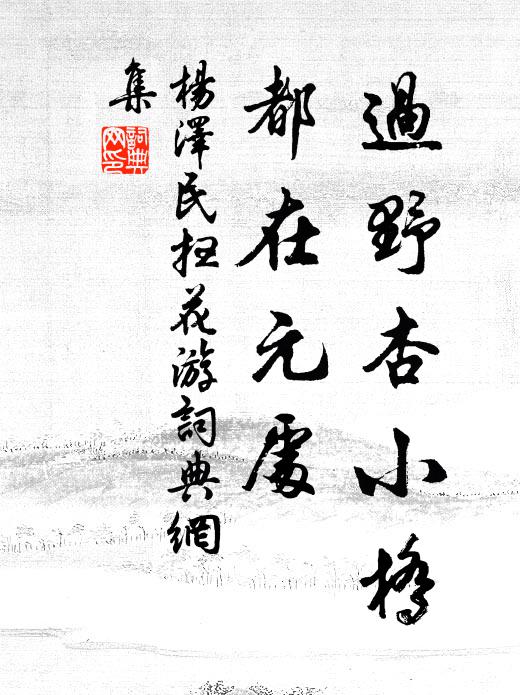 過野杏小橋
都在元處
楊澤民扫花游詞典網
集
詞典
网印